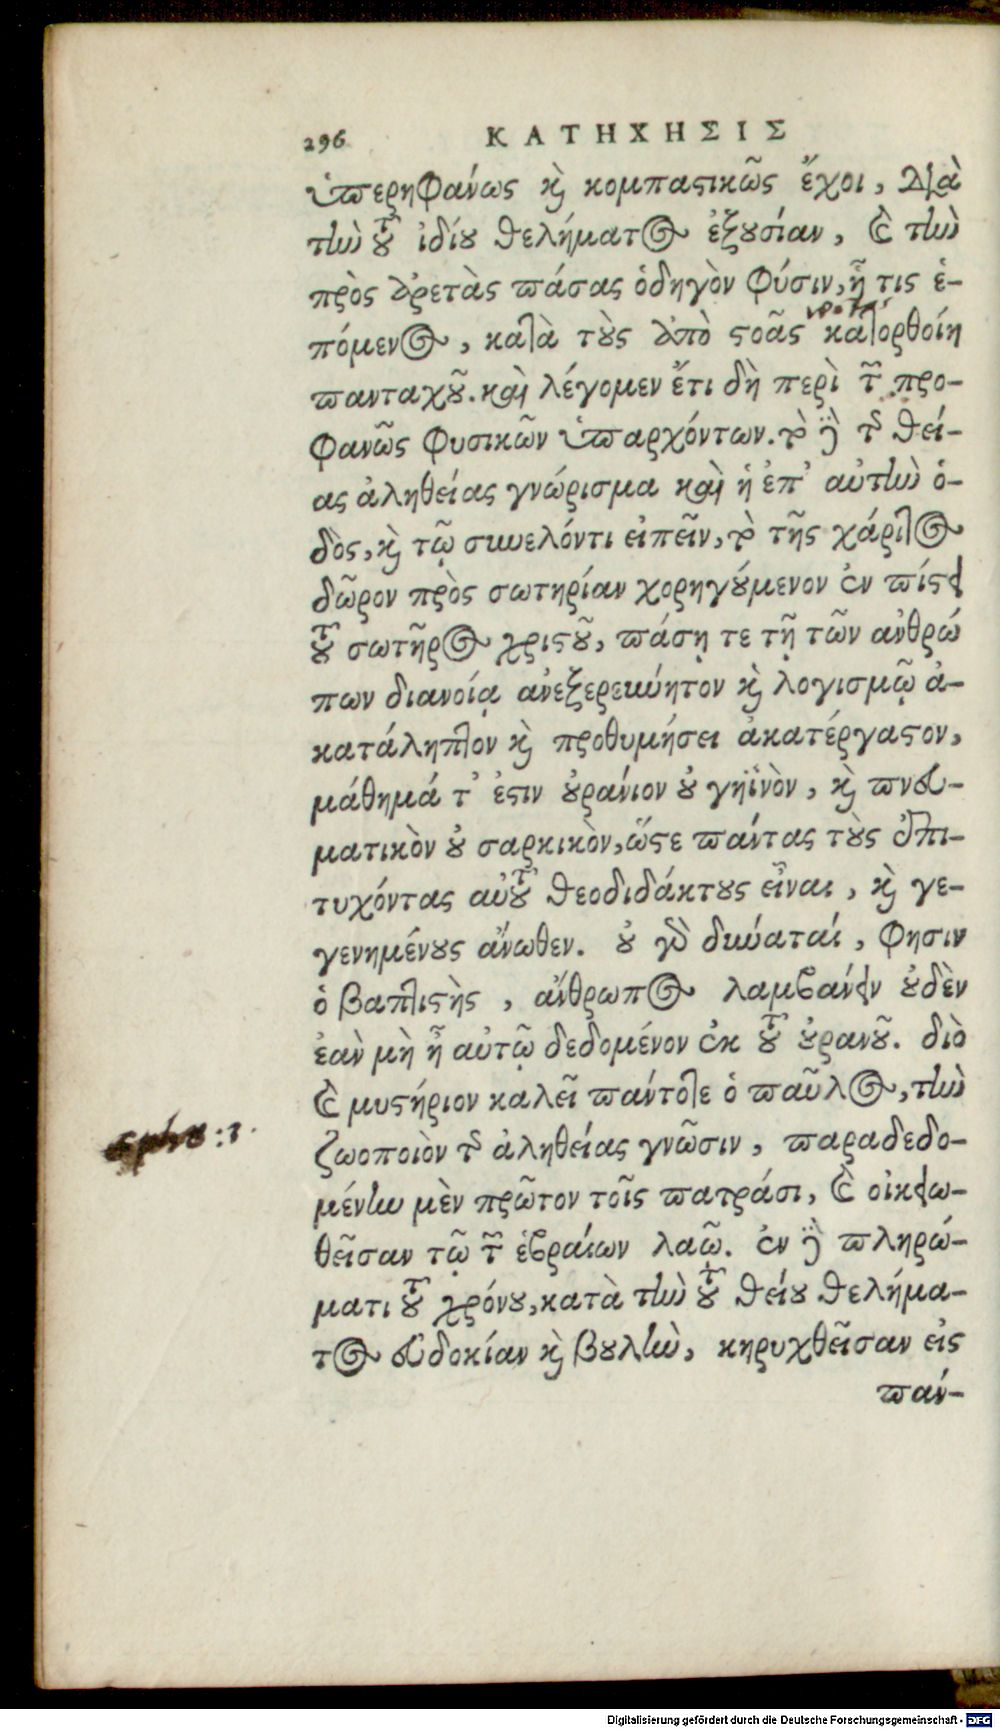 296 ΚΑΤΗΧΗΣΙΣ
ὑπερηφάνως κὶ κομπαςικῶς ἔχοι, διὰ
τὴν τοῦ ἰδίου θελήματος ἐξουσίαν, καὶ τὴν
πρὸς ἀρετὰς πάσας ὁδηγὸν φύσιν, ἥ τις ἑ-
πόμενος, κατὰ τοὺς ἀπὸ ςοᾶς κατορθοίη
πανταχοῦ. καὶ λέγομεν ἔτι δὴ περὶ τῶν προ-
φανῶς φυσικῶν ὑπαρχόντων. τὸ δὲ τῆς θεί-
ας ἀληθείας γνώρισμα καὶ ἡ ἐπ’ αὐτὴν ὁ-
δὸς, κὶ τῷ συνελόντι εἰπεῖν, τὸ τῆς χάριτος
δῶρον πρὸς σωτηρίαν χορηγούμενον ἐν πίςει
τοῦ σωτῆρος χριςοῦ, πάσῃ τε τῇ τῶν ἀνθρώ
πων διανοίᾳ ἀνεξερεύνητον κὶ λογισμῷ ἀ-
κατάληπτον κὶ προθυμήσει ἀκατέργαςον,
μάθημά τ’ ἐςιν οὐράνιον οὐ γήϊνὸν, κὶ πνευ-
ματικὸν οὐ σαρκικὸν, ὥςε πάντας τοὺς ἐπι-
τυχόντας αὐτοῦ θεοδιδάκτους εἶναι, κὶ γε-
γενημένους ἄνωθεν. οὐ γὰρ δύναταί, φησιν
ὁ βαπτιςὴς, ἄνθρωπος λαμβάνειν οὐδὲν
ἐὰν μὴ ᾖ αὐτῷ δεδομένον ἐκ τοῦ οὐρανοῦ. διὸ
καὶ μυςήριον καλεῖ πάντοτε ὁ παῦλος, τὴν
ζωοποιὸν τῆς ἀληθείας γνῶσιν, παραδεδο-
μένην μὲν πρῶτον τοῖς πατράσι, καὶ οἰκειω-
θεῖσαν τῷ τῶν ἑβραίων λαῷ. ἐν δὲ πληρώ-
ματι τοῦ χρόνου, κατὰ τὴν τοῦ θείου θελήμα-
τος εὐδοκίαν κὶ βουλὴν, κηρυχθεῖσαν εἰς
πάν-
Digitalisierung gefördert durch die Deutsche Forschungsgemeinschaft - DFG